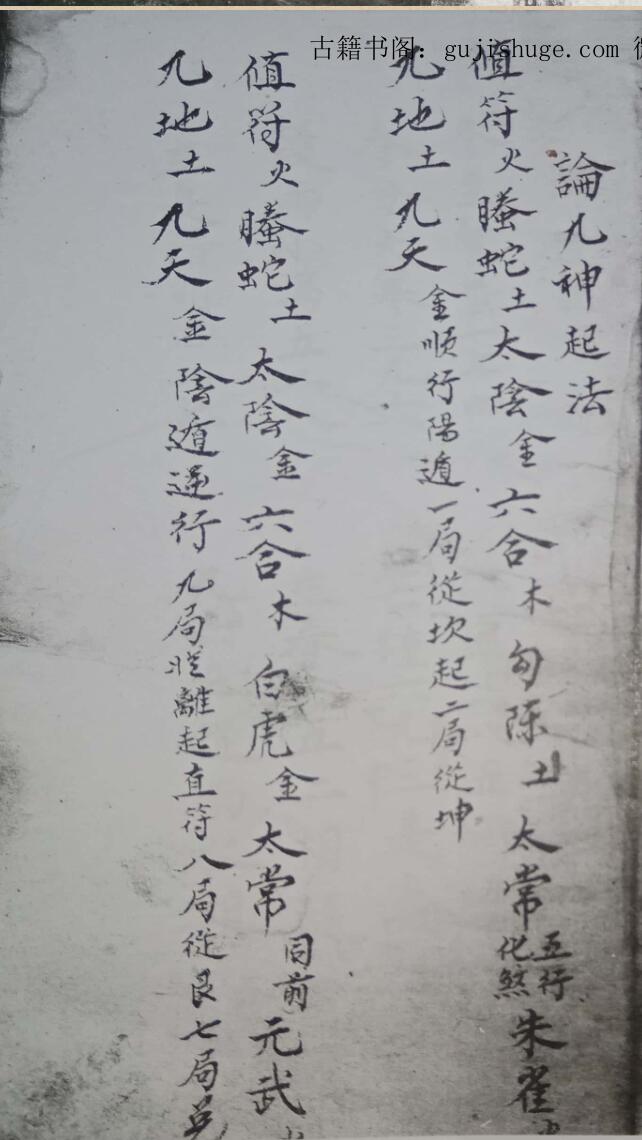 古籍书阁：gujishuge.com
論九神起法
值符火螣蛇土太陰金六合木勾陈土太常五行化煞朱雀
九地土九天金顺行陽遁一局從坎起二局從坤
值符火螣蛇土太陰金六合木白虎金太常同前元武
九地土九天金陰遁逆行九局從離起直符八局從艮七局